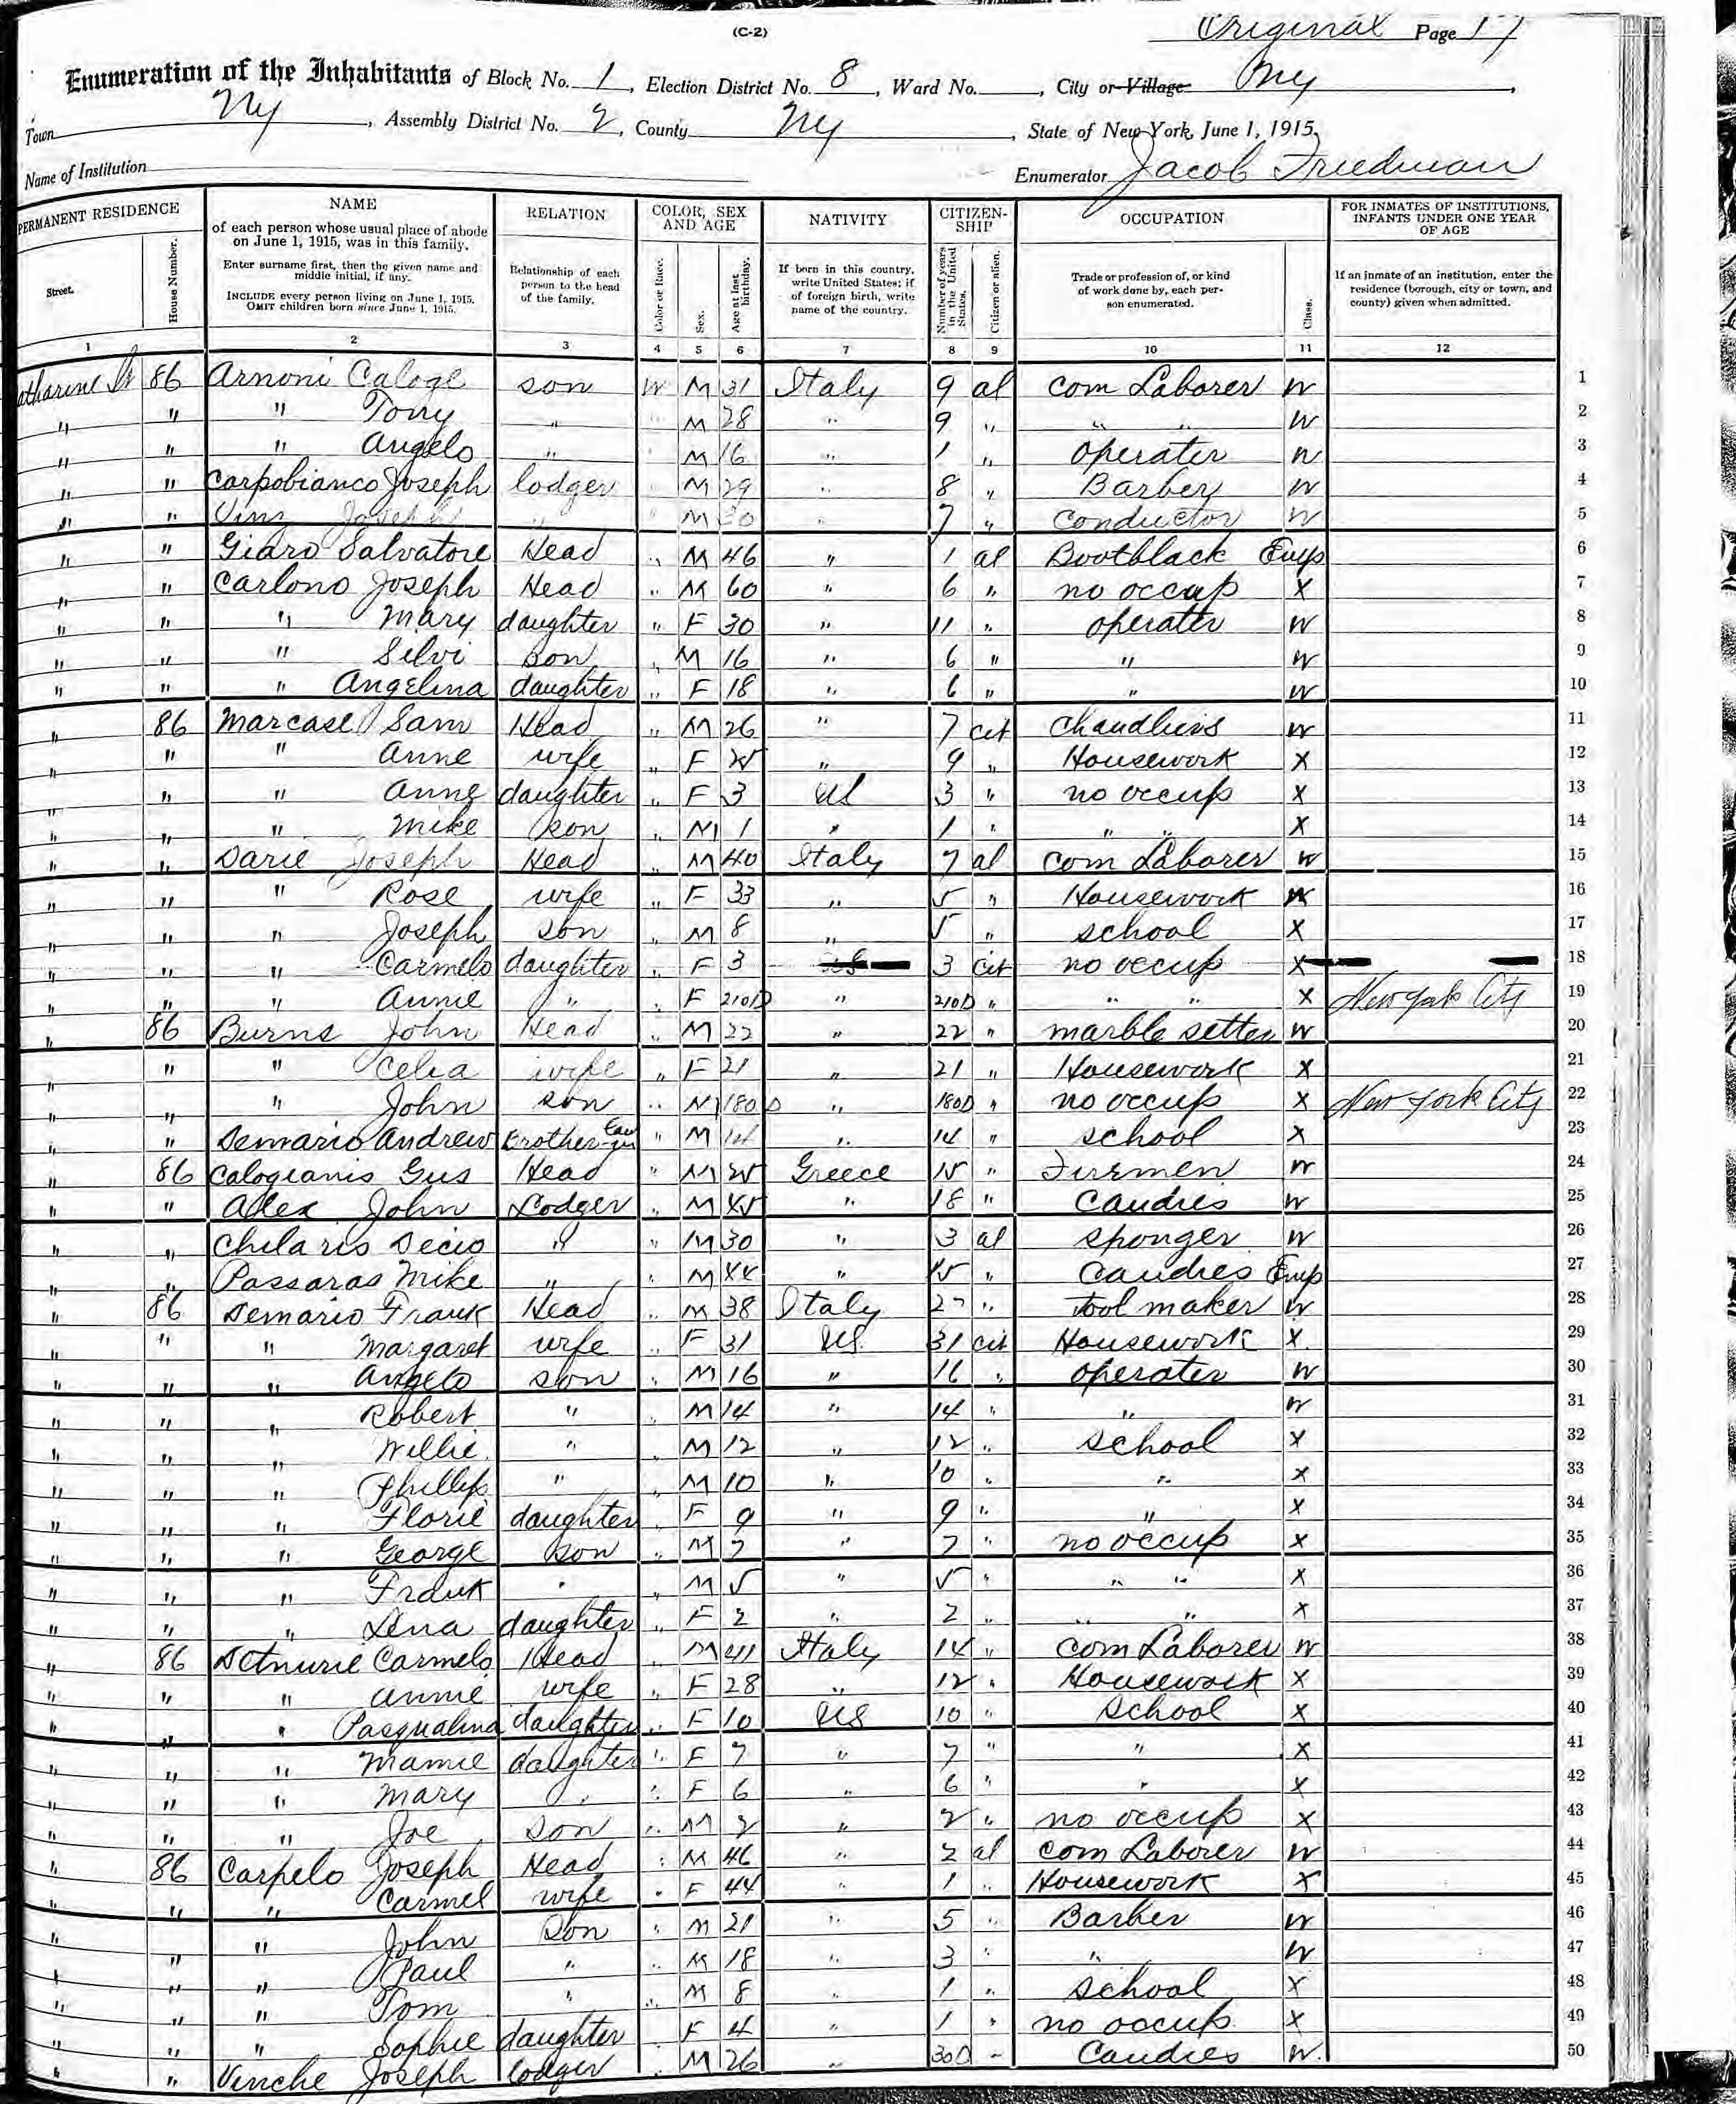 (C-2)
Original Page 17
Enumeration of the Inhabitants of Block No. 1, Election District No. 8, Ward No. , City or Village Ny ,
Town Ny , Assembly District No. 2, County Ny , State of New York, June 1, 1915.
Name of Institution Enumerator Jacob Friedman
PERMANENT RESIDENCE
Street.
House Number.
1
NAME
of each person whose usual place of abode on June 1, 1915, was in this family.
Enter surname first, then the given name and middle initial, if any.
INCLUDE every person living on June 1, 1915.
OMIT children born since June 1, 1915.
2
RELATION
Relationship of each person to the head of the family.
3
COLOR, SEX AND AGE
Color or Race.
Sex.
Age at last birthday.
4 5 6
NATIVITY
If born in this country, write United States; if of foreign birth, write name of the country.
7
CITIZEN-SHIP
Number of years in the United States.
Citizen or alien.
8 9
OCCUPATION
Trade or profession of, or kind of work done by, each person enumerated.
Class.
10 11
FOR INMATES OF INSTITUTIONS, INFANTS UNDER ONE YEAR OF AGE
If an inmate of an institution, enter the residence (borough, city or town, and county) given when admitted.
12
atharine St 86 Arnoni Caloge son W M 31 Italy 9 al com Laborer W 1
" " " Tony " M 28 " 9 " " " W 2
" " " Angelo " M 16 " 1 " operater W 3
" " Carpobianco Joseph lodger M 29 " 8 " Barber W 4
" " Joseph " M " 7 " conductor W 5
" " Giaro Salvatore Head " M 46 " 1 al Bootblack Emp 6
" " Carlono Joseph Head " M 60 " 6 " no occup X 7
" " " Mary daughter " F 30 " 11 " operater W 8
" " " Selvi son " M 16 " 6 " " W 9
" " " Angelina daughter " F 18 " 6 " " W 10
" 86 Marcase Sam Head " M 26 " 7 cit W 11
" " " Anne wife " F " 9 " Housework X 12
" " " Anne daughter " F 3 US 3 " no occup X 13
" " " Mike son " M 1 " 1 " " " X 14
" " Darie Joseph Head " M 40 Italy 7 al com Laborer W 15
" " " Rose wife " F 33 " 5 " Housework 16
" " " Joseph son " M 8 " 5 " school X 17
" " " Carmelo daughter " F 3 US 3 cit no occup X 18
" " " Annie " " F 210D " 210D " " " X New York City 19
" 86 Burns John Head " M 22 " 22 " marble setter W 20
" " " Celia wife " F 21 " 21 " Housework X 21
" " " John son " M 180D " 180D " no occup X New York City 22
" " Demario Andrew Brother-in Law " M 14 " 14 " school X 23
" 86 Calogianis Gus Head " M 25 Greece 15 " Firemen W 24
" " Alex John Lodger " M 45 " 18 " Candies W 25
" " Chilaris Decio " " M 30 " 3 al sponger W 26
" " Passaras Mike " " M 44 " 15 " Candies Emp 27
" 86 Demario Frank Head " M 38 Italy 27 " tool maker W 28
" " " Margaret wife " F 31 US 31 cit Housework X 29
" " " Angelo son " M 16 " 16 " operater W 30
" " " Robert " " M 14 " 14 " " W 31
" " " Willie " " M 12 " 12 " school X 32
" " " Phillip " " M 10 " 10 " " X 33
" " " Florie daughter " F 9 " 9 " " X 34
" " " George son " M 7 " 7 " no occup X 35
" " " Frank " " M 5 " 5 " " " X 36
" " " Lena daughter " F 2 " 2 " " " X 37
" 86 Carmelo Head " M 41 Italy 14 " com Laborer W 38
" " " Annie wife " F 28 " 12 " Housework X 39
" " " Pasqualina daughter " F 10 US 10 " School X 40
" " " Mamie daughter " F 7 " 7 " " X 41
" " " Mary " " F 6 " 6 " " X 42
" " " Joe son " M 2 " 2 " no occup X 43
" 86 Carpelo Joseph Head " M 46 " 2 al com Laborer W 44
" " " Carmel wife " F 44 " 1 " Housework X 45
" " " John son " M 21 " 5 " Barber W 46
" " " Paul " " M 18 " 3 " " W 47
" " " Tom " " M 8 " 1 " school X 48
" " " Sophie daughter F 4 " 1 " no occup X 49
" " Vinche Joseph lodger M 26 " 30D " Candies W 50